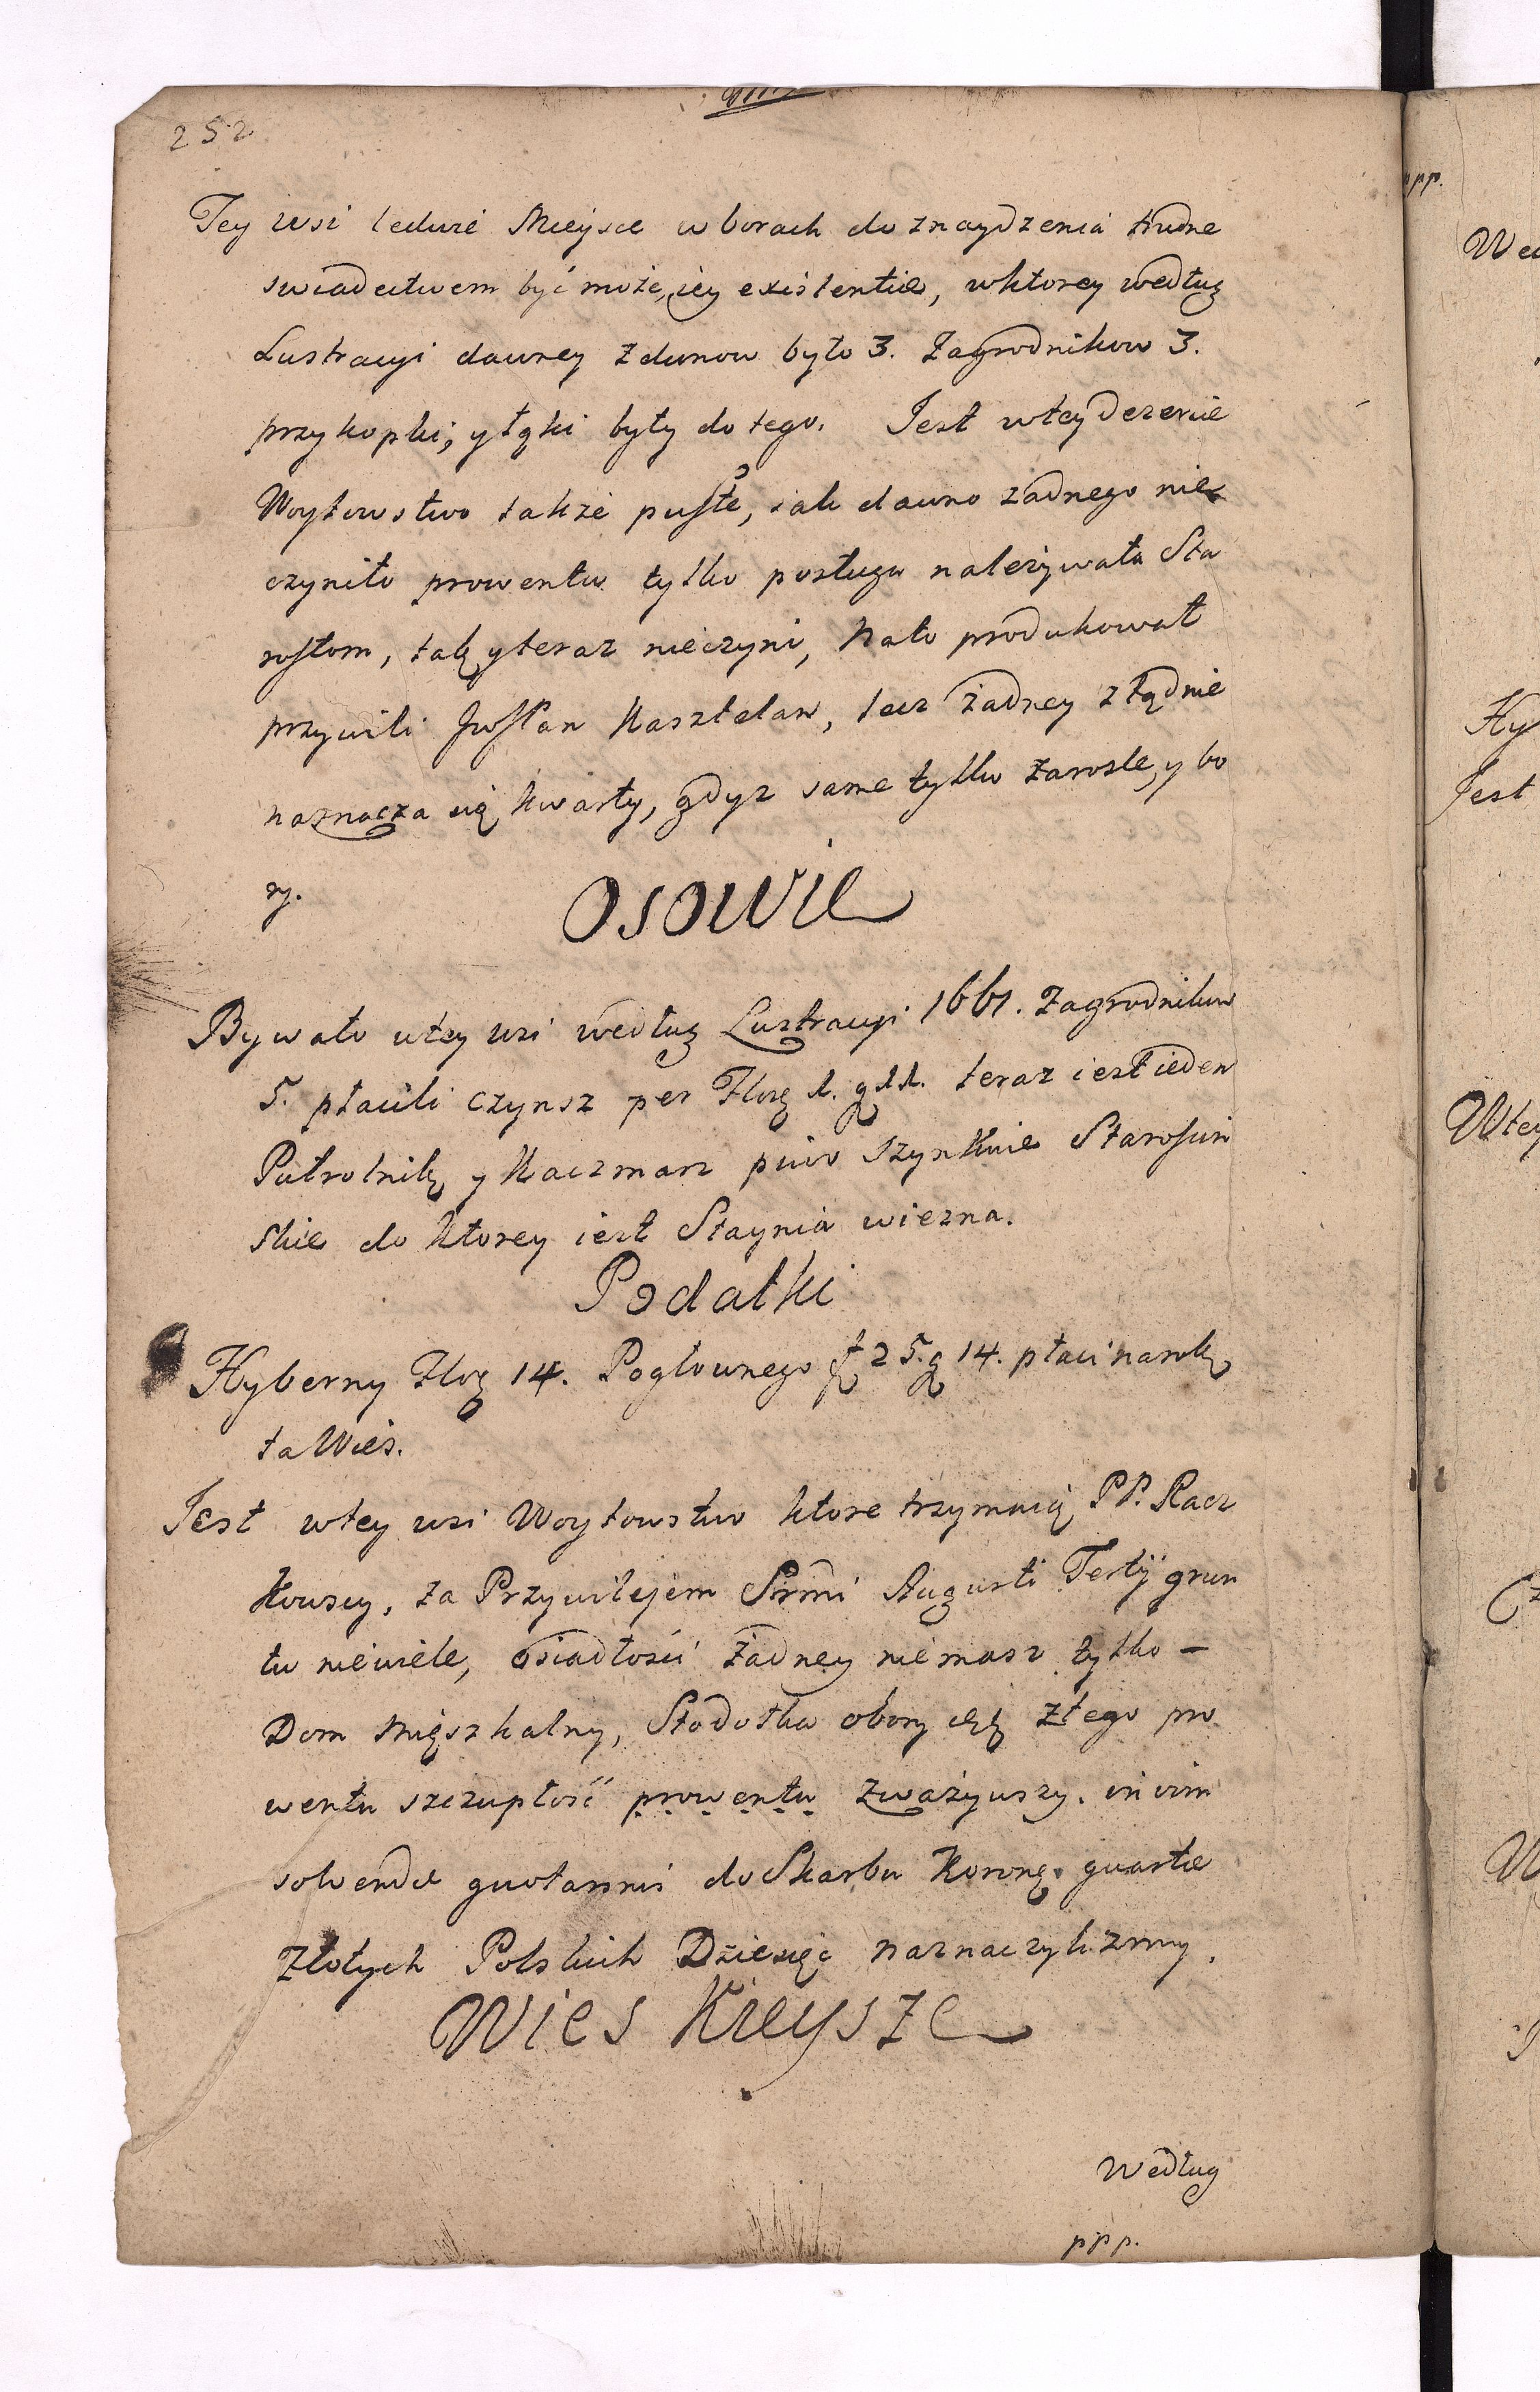 252.
Tey wsi ledwie Mieysce w borach do znaydzenia trudne
swiadectwem być może, iey existentiæ, wktorey według
Lustracyi dawney Zdunow było 3. Zagrodnikow 3.
przykopki, y łąki były do tego. Jest wtey dezercie
Woytowstwo także puste, iak dawno zadnego nie
czyniło prowentu tylko posługa należywała Sta
rostom, tak y teraz nieczyni, Na to produkował
przywili JmPan Kasztelan, lecz żadney ztąd nie
naznacza się kwarty, gdyz same tylko zarosle, y bo
ry.
Osowie
Bywało wtey wsi według Lustracyi 1661. Zagrodnikow
5. płacili czynsz per Złoy 1. g 11. teraz iest ieden
Putrolnik, y Kaczmarz piwo szynkuie Starościn
skie do ktorey iest Staynia wiezna.
Podatki
Hyberny Złoy 14. Pogłownego f 25. g 14. płaci na rok
ta Wies.
Jest wtey wsi Woytowstwo ktore trzymaią PP. Racz
kowscy, za Przywilejem Srmi Augusti Tertij grun
tu niewiele, osiadłości żadney niemasz tylko -
Dom Mięszkalny, Stodołka obory ztego pro
wentu szczupłość prowentu zważywszy. in vim
solvendæ quotannis do Skarbu Koronę. quartæ
Złotych Polskich Dziesięć naznaczylizmy.
Wies Kieysze
Według
ppp.
ppp.
Wed
Hy
Jest
Wtey
Cz
W